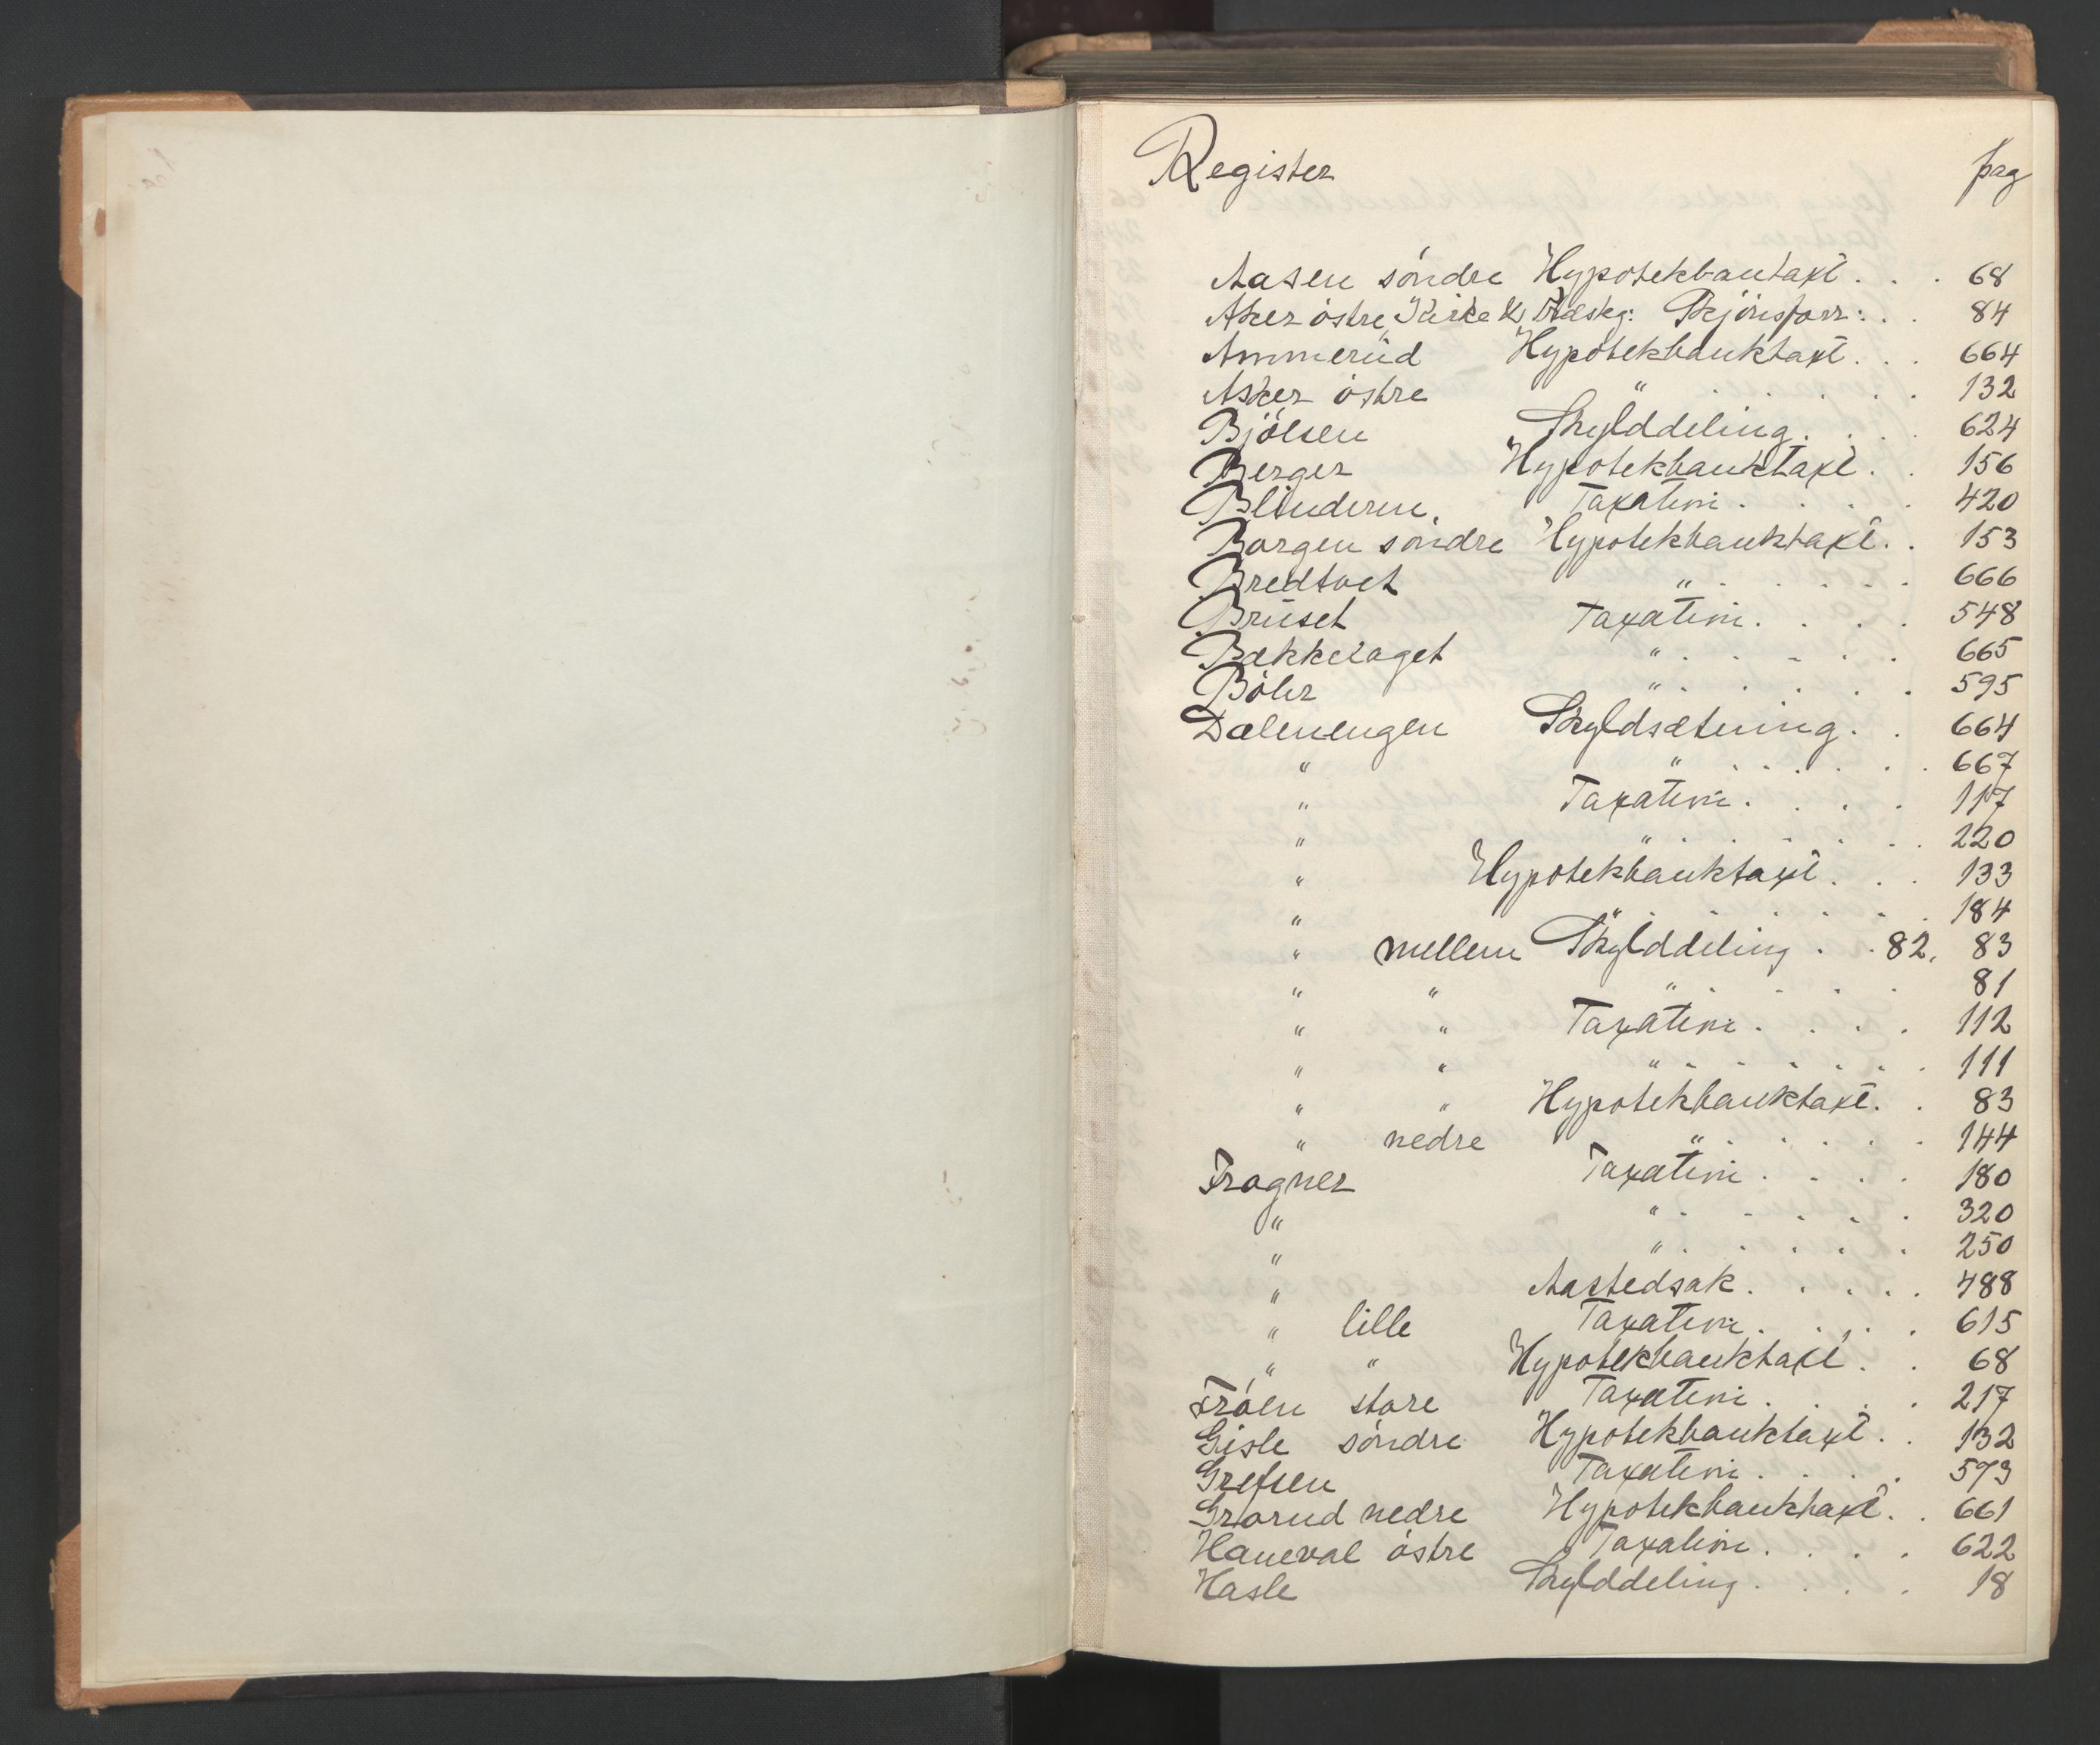 Register pag
Aasen söndre Hypotekbantaxt . . . 68
Aker östre, Kirke & Skjönsforr: . . 84
Ammerud Hypotekbanktaxt . . . 664
Asker östre " . . . . . 132
Bjölsen Skylddeling . . . . 624
Berger Hypotekbanktaxt . . 156
Blindern. Taxation . . . . 420
Borgen söndre Hypotekbanktaxt . . 153
Bredtvet " . . . . . 666
Bruset Taxation . . . . 548
Bækkelaget " . . . . . 665
Böler " . . . . . 595
Dælenengen Skyldsætning . . 664
" " . . . . . . 667
" Taxation . . . . 117
" " . . . . . . 220
" Hypotekbanktaxt . . . 133
" " . . . . . . 184
" mellem Skylddeling . . 82, 83
" " " . . . . . 81
" " Taxation . . . . 112
" " " . . . . . . 111
" " Hypotekbanktaxt . . 83
" nedre " . . . . . 144
Frogner Taxation . . . . 180
" " . . . . . 320
" " . . . . . 250
" Aastedsak . . . . . 488
" lille Taxation . . . . 615
" " Hypotekbanktaxt . . 68
Fröen store Taxation . . . . 217
Gisle söndre Hypotekbanktaxt . . 132
Grefsen Taxation . . . . 573
Grorud nedre Hypotekbanktaxt . . 661
Haneval östre Taxation . . . . 622
Hasle Skylddeling . . . . 18